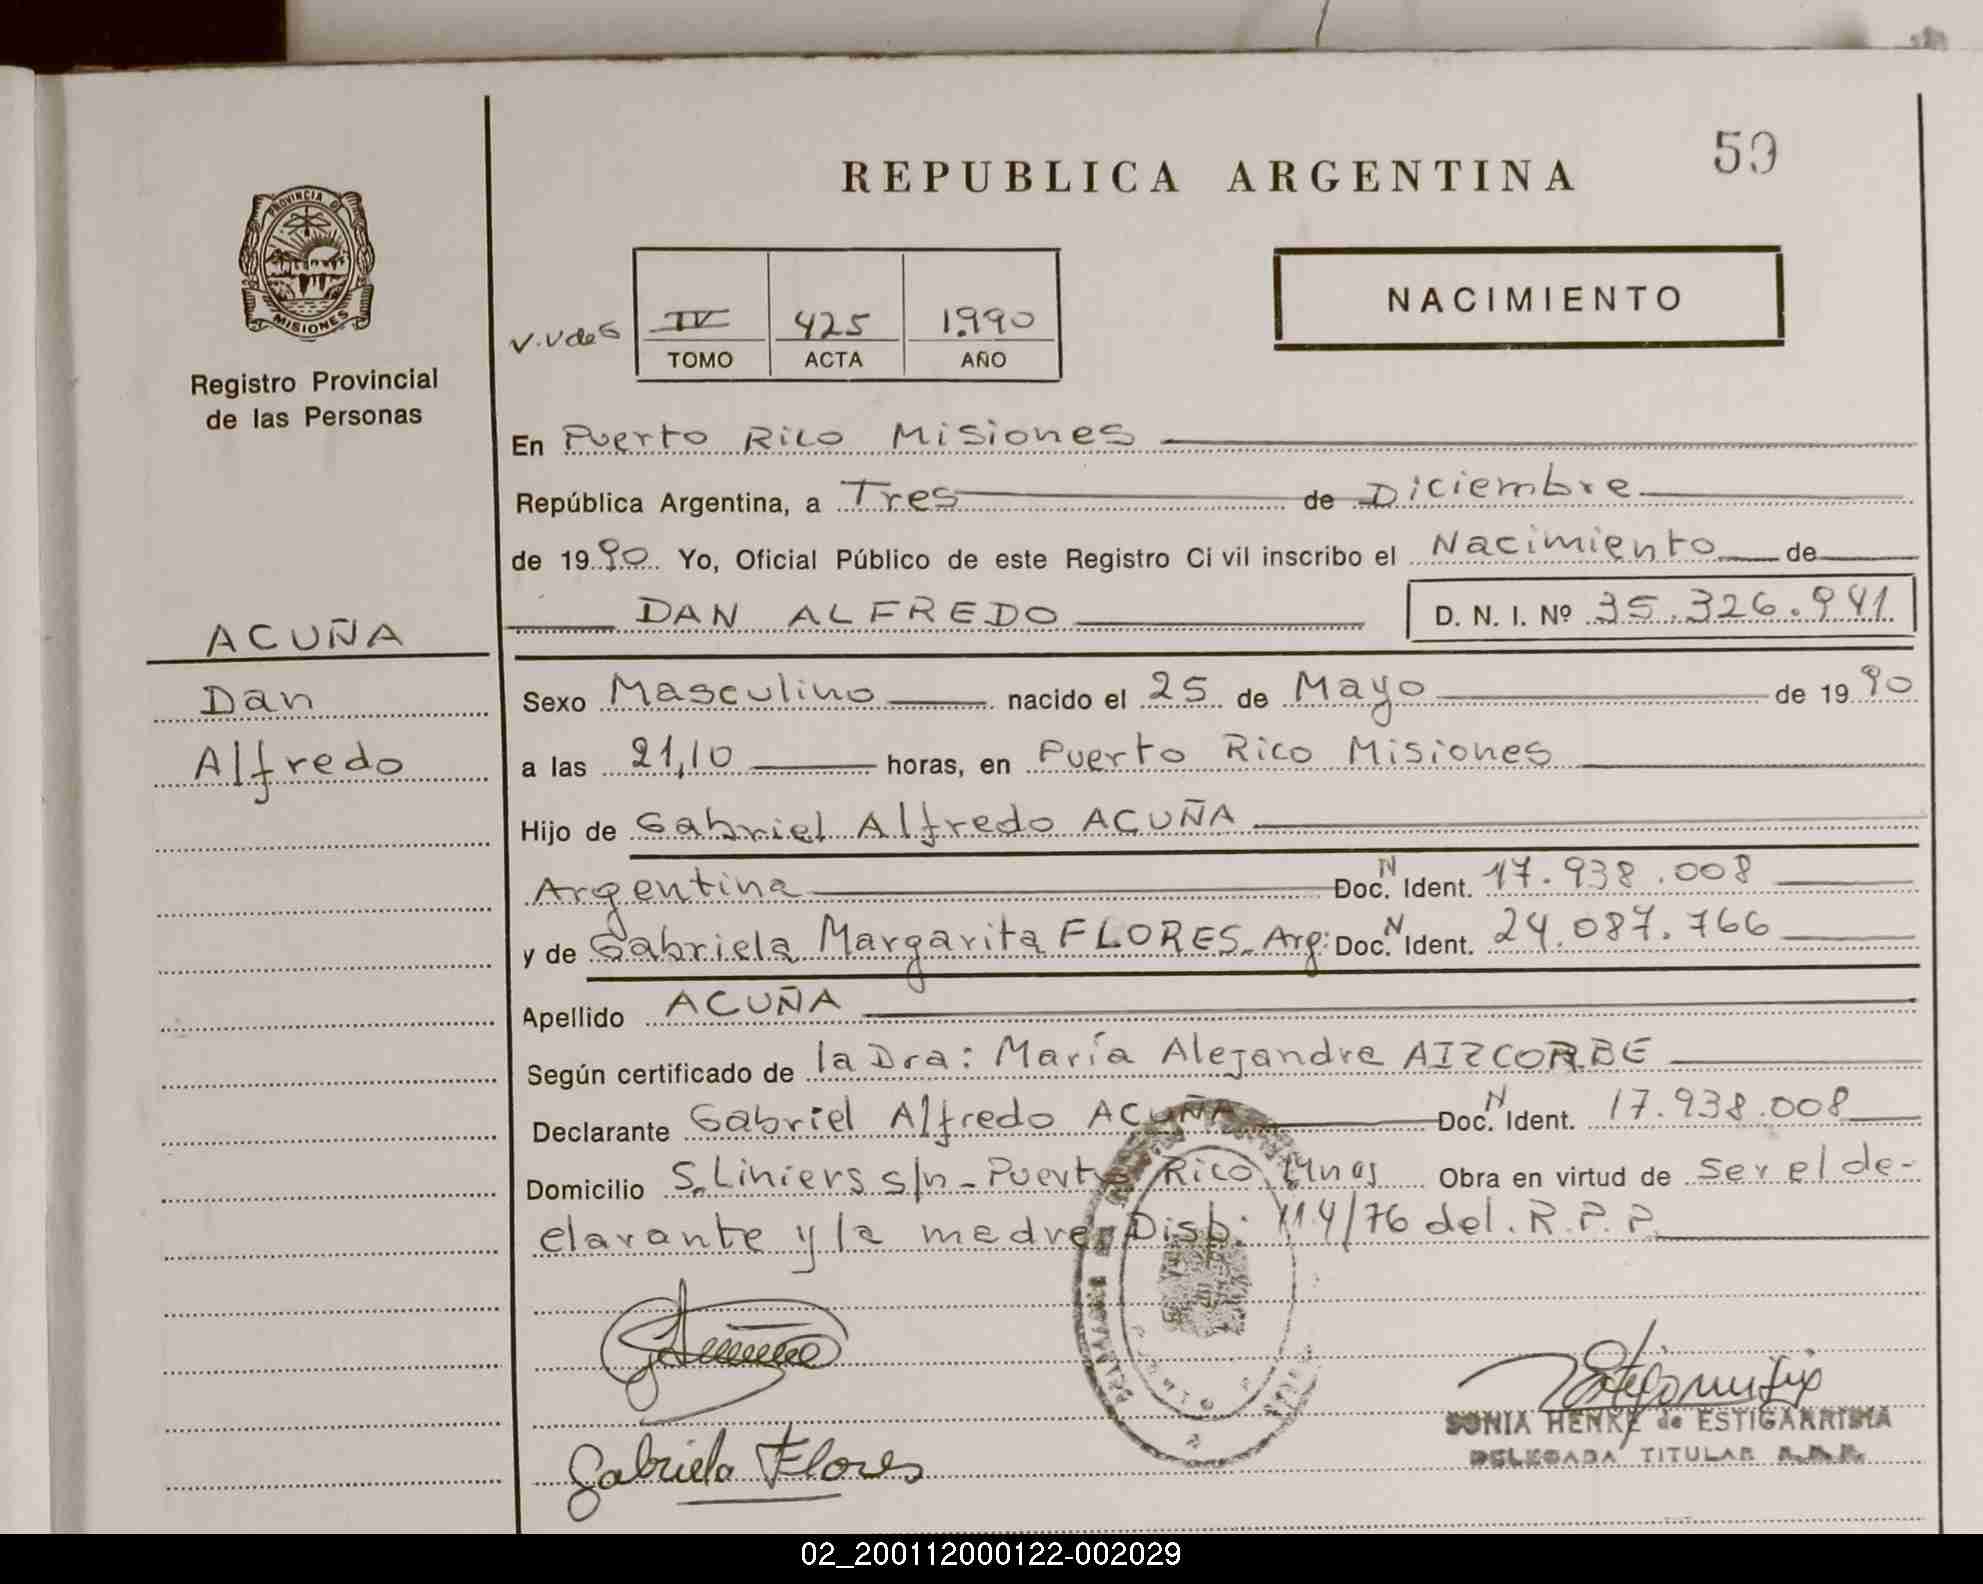 59
REPUBLICA ARGENTINA
PROVINCIA DE
MISIONES
Registro Provincial
de las Personas
V.V de G
IV 425 1.990
TOMO ACTA AÑO
NACIMIENTO
En Puerto Rico Misiones
República Argentina, a Tres de Diciembre
de 19 90 Yo, Oficial Público de este Registro Ci vil inscribo el Nacimiento de
DAN ALFREDO D. N. I. Nº 35.326.941
ACUÑA
Dan
Alfredo
Sexo Masculino nacido el 25 de Mayo de 19 90
a las 21,10 horas, en Puerto Rico Misiones
Hijo de Gabriel Alfredo ACUÑA
Argentina Doc. N Ident. 17.938.008
y de Gabriela Margarita FLORES. Arg: Doc. N Ident. 24.087.766
Apellido ACUÑA
Según certificado de la Dra: María Alejandra AIZCORBE
Declarante Gabriel Alfredo ACUÑA Doc. N Ident. 17.938.008
Domicilio S. Liniers s/n - Puerto Rico Mnes Obra en virtud de ser el de-
clarante y la madre, Disp. 114/76 del. R.P.P.
Gabriela Flores
SONIA HENKE de ESTIGARRIBIA
DELEGADA TITULAR R.P.P.
02_200112000122-002029